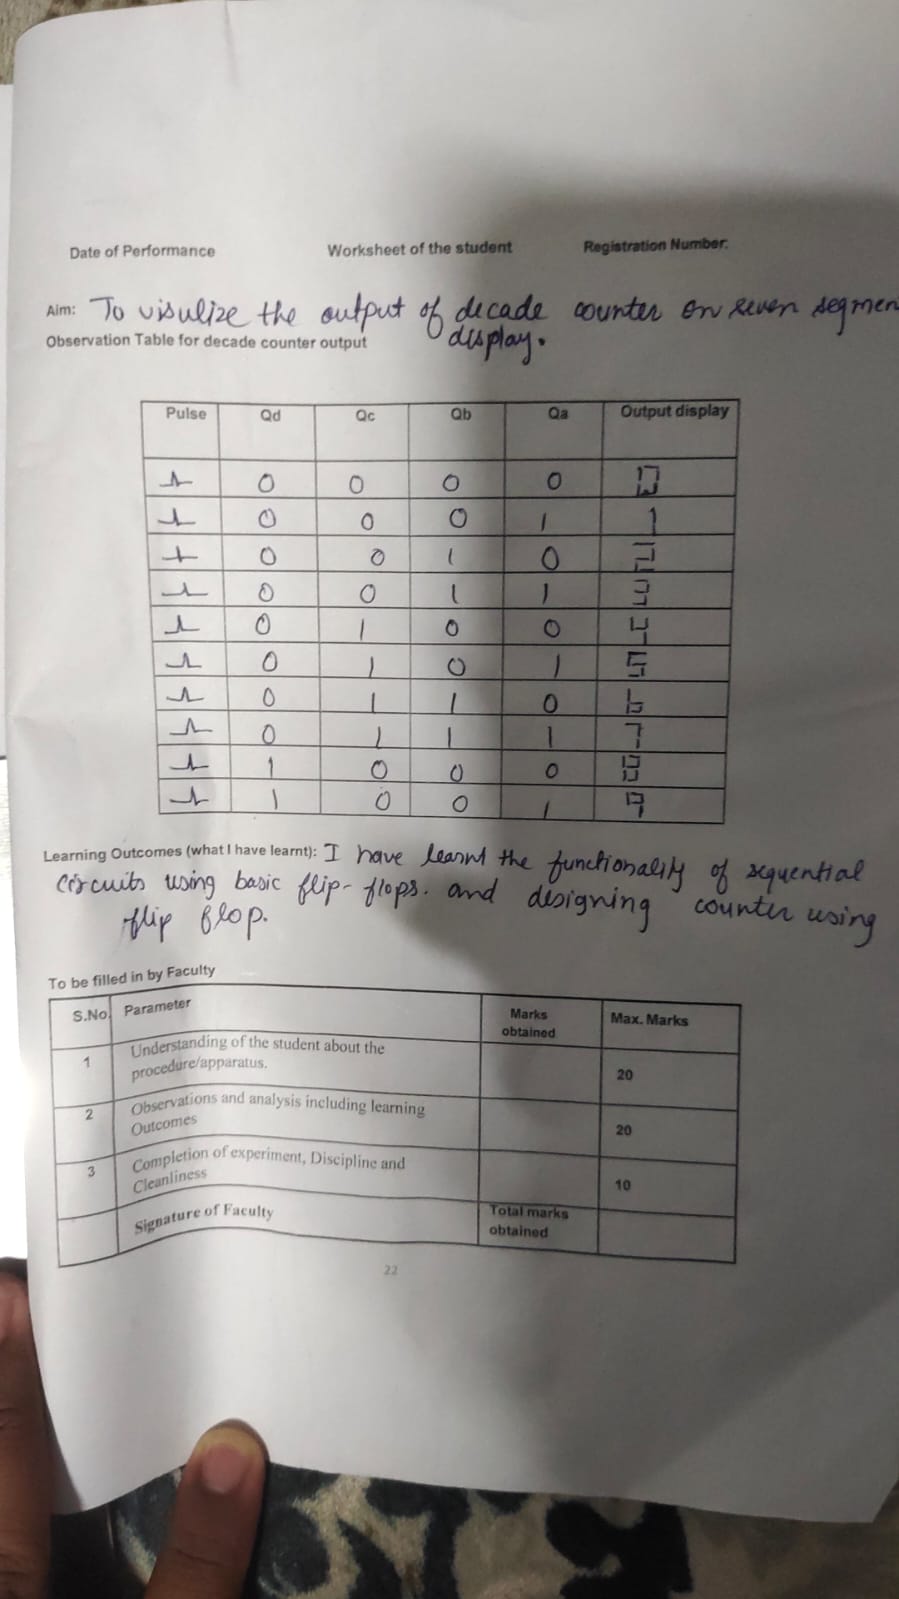 Date of Performance Worksheet of the student Registration Number:
Aim: To visulize the output of decade counter on seven segmen
display.
Observation Table for decade counter output
Pulse Qd Qc Qb Qa Output display
0 0 0 0 0
0 0 0 1 1
0 0 1 0 2
0 0 1 1 3
0 1 0 0 4
0 1 0 1 5
0 1 1 0 6
0 1 1 1 7
1 0 0 0 8
1 0 0 1 9
Learning Outcomes (what I have learnt): I have learnt the functionality of sequential
circuits using basic flip-flops. and designing counter using
flip flop.
To be filled in by Faculty
S.No. Parameter Marks obtained Max. Marks
1 Understanding of the student about the procedure/apparatus. 20
2 Observations and analysis including learning Outcomes 20
3 Completion of experiment, Discipline and Cleanliness 10
Signature of Faculty Total marks obtained
22